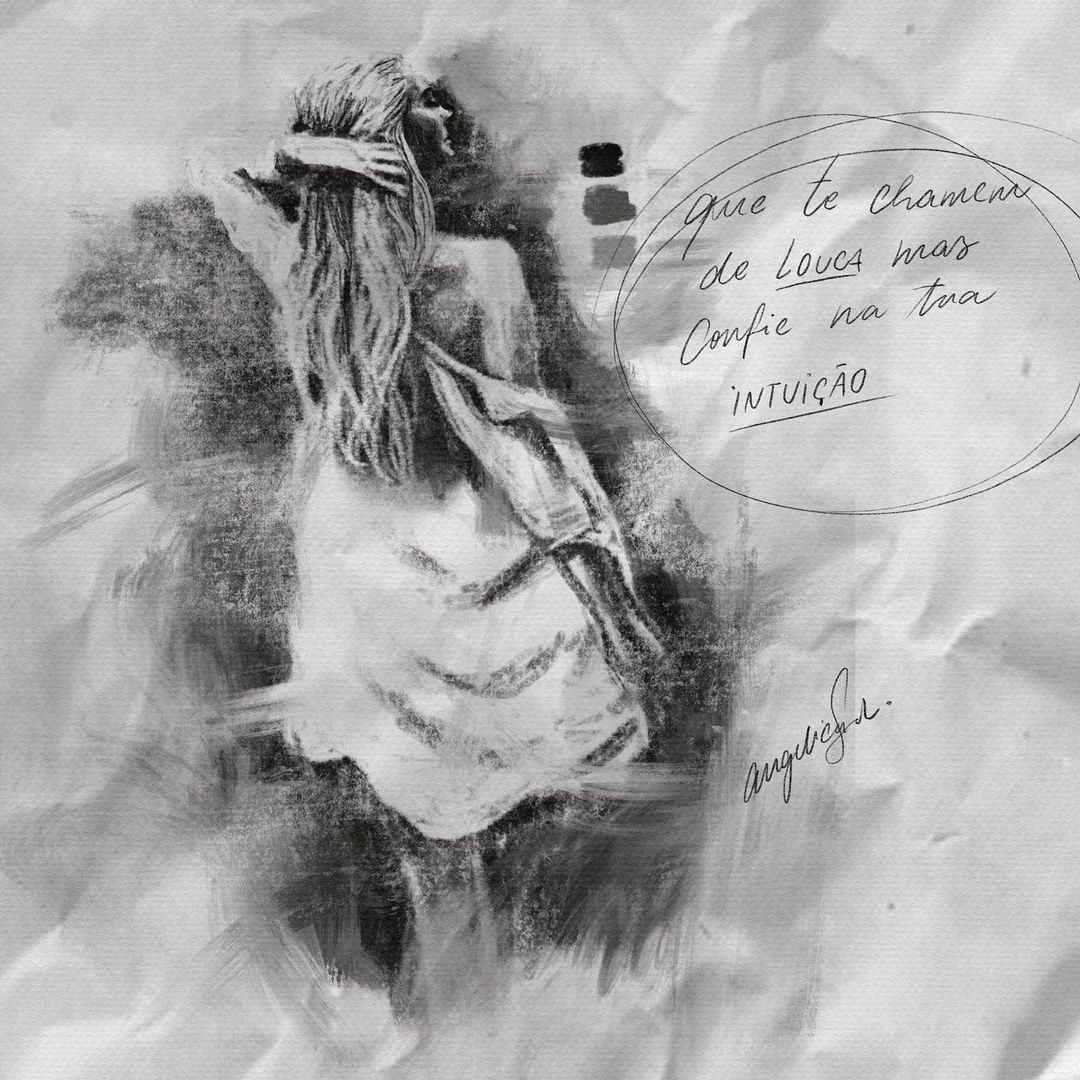 que te chamem
de LOUCA mas
Confie na tua
INTUIÇÃO